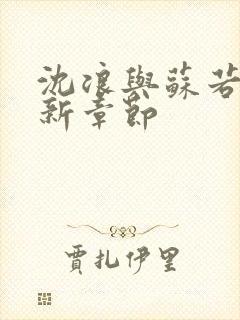 沈浪與蘇若
新章節
賈扎伊里